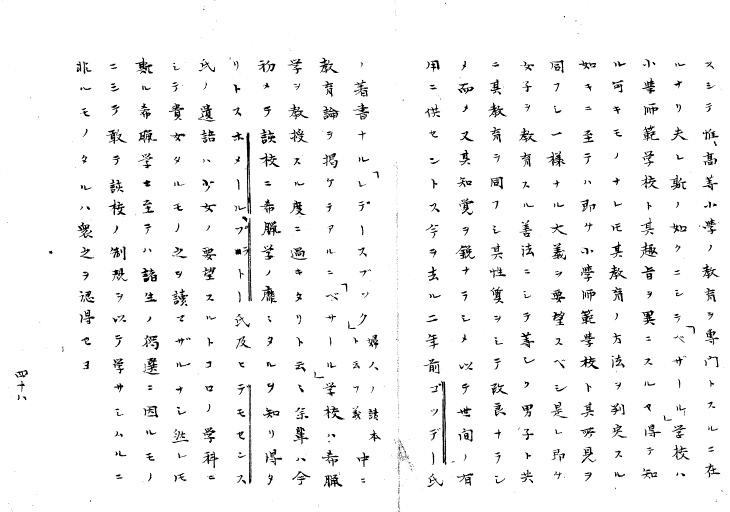 スシテ惟高等小学ノ教育ヲ専門トスルニ在
ルナリ夫レ斯ノ如クニシテ「ベザール」学校ハ
小学師範学校ト其趣旨ヲ異ニスルヿ得テ知
ル可キモノナレ𪜈其教育ノ方法ヲ判定スル
如キニ至テハ即チ小学師範学校ト其所見ヲ
同フシ一様ナル大義ヲ要望スベシ是レ即チ
女子ヲ教育スル善法ニシテ等シク男子ト共
ニ其教育ヲ同フシ其性質ヲシテ改良ナラシ
メ而メ又其知覚ヲ鋭ナラシメ以テ世間ノ有
用ニ供セントス今ヲ去ル二年前ゴッデー氏
ノ著書ナル「レデースブック」婦人ノ読本ト云フ義中ニ
教育論ヲ掲ケテアルニ「ベサール」学校ハ希臘
学ヲ教授スル度ニ過キタリト云々余輩ハ今
初メテ該校ニ希臘学ノ靡ミタルヲ知リ得タ
リトスホメールプラトー氏及ヒデモセンス
氏ノ遺語ハ少女ノ要望スルトコロノ学科ニ
シテ貴女タルモノ之ヲ読マザルナシ然レ𪜈
斯ル希臘学ニ至テハ諸生ノ獨選ニ因ルモノ
ニシテ敢テ該校ノ制規ヲ以テ学サシムルニ
非ルモノタルハ衆之ヲ認得セヨ
四十八